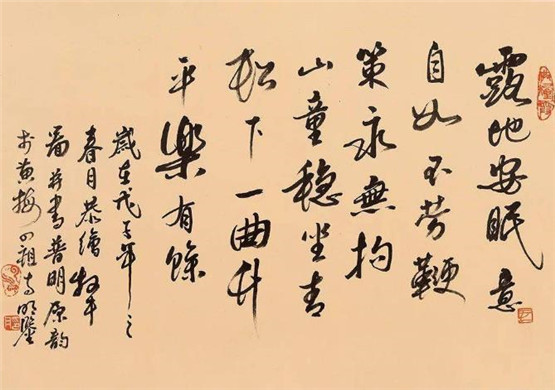 露地安眠意
自如不劳鞭
策永無拘
山童稳坐青
松下一曲升
平樂有餘
歲在戊子年之
春月恭繪牧牛
畫并書普明原韵
於黄梅四祖寺明鑒